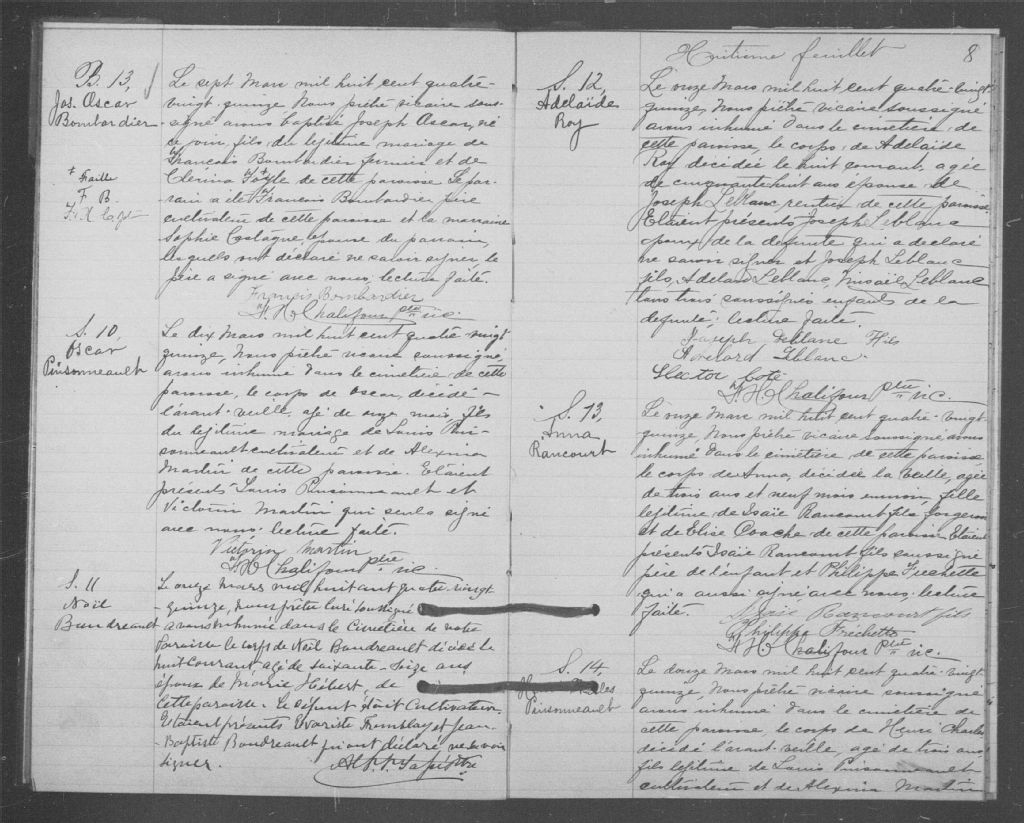 B. 13,
Jos. Oscar
Bombardier
+ Faille
F. B.
Le sept Mars mil huit cent quatre-
vingt-quinze Nous prêtre vicaire sous-
signé avons baptisé Joseph Oscar, né
ce jour, fils du légitime mariage de
François Bombardier fermier et de
Clérina de cette paroisse Le par-
rain a été François Bombardier père
cultivateur de cette paroisse et la marraine
Sophie épouse du parrain,
lesquels ont déclaré ne savoir signer le
père a signé avec nous, lecture faite.
François Bombardier
F. H. Chalifour ptre vic.
S. 10,
Oscar
Pinsonneault
Le dix Mars mil huit cent quatre-vingt
quinze, Nous prêtre vicaire soussigné,
avons inhumé dans le cimetière de cette
paroisse, le corps de Oscar, décédé
l'avant-veille, agé de onze mois, fils
du légitime mariage de Louis Pin-
sonneault cultivateur et de Alexina
Martin de cette paroisse. Etaient
présents Louis Pinsonneault et
Victorin Martin qui seul a signé
avec nous: lecture faite.
Victorin Martin
F. H. Chalifour ptre vic.
S. 11
Noël
Boudreault
Le onze Mars mil huit cent quatre-vingt
quinze, nous prêtre Curé soussigné
avons inhumé dans le Cimetière de notre
Paroisse le corps de Noël Boudreault décédé le
huit courant agé de soixante-seize ans
époux de Marie Hébert, de
cette paroisse. Le défunt était Cultivateur.
Etaient présents Evariste Tremblay et Jean-
Baptiste Boudreault qui ont déclaré ne savoir
signer.
Ptre
Huitième feuillet 8
S. 12,
Adelaïde
Roy
Le onze Mars mil huit cent quatre-vingt
quinze, Nous prêtre vicaire soussigné
avons inhumé dans le cimetière de
cette paroisse, le corps de Adelaïde
Roy décédée le huit courant, agée
de cinquante huit ans épouse de
Joseph Leblanc rentier de cette paroisse.
Etaient présents Joseph Leblanc
époux de la défunte qui a déclaré
ne savoir signer et Joseph Leblanc
fils, Adelard Leblanc, Misaël Leblanc
tous trois soussignés enfants de la
défunte: lecture faite.
Joseph Leblanc Fils
Adelard Leblanc.
Hector Coté
F. H. Chalifour ptre vic.
S. 13,
Anna
Rancourt
Le onze Mars mil huit cent quatre-vingt
quinze, Nous prêtre vicaire soussigné, avons
inhumé dans le cimetière de cette paroisse
le corps de Anna, décédée la veille, agée
de trois ans et neuf mois environ fille
légitime de Isaïe Rancourt fils forgeron
et de Elise de cette paroisse Etaient
présents Isaïe Rancourt fils soussigné
père de l'enfant et Philippe Frechette
qui a aussi signé avec nous: lecture
faite.
Isaïe Rancourt fils
Philippe Frechette
F. H. Chalifour Ptre vic.
S. 14,
Henri Charles
Pinsonneault
Le douze Mars mil huit cent quatre-vingt
quinze, Nous prêtre vicaire soussigné
avons inhumé dans le cimetière de
cette paroisse, le corps de Henri Charles
décédé l'avant-veille, agé de trois ans
fils légitime de Louis Pinsonneault
cultivateur et de Alexina Martin